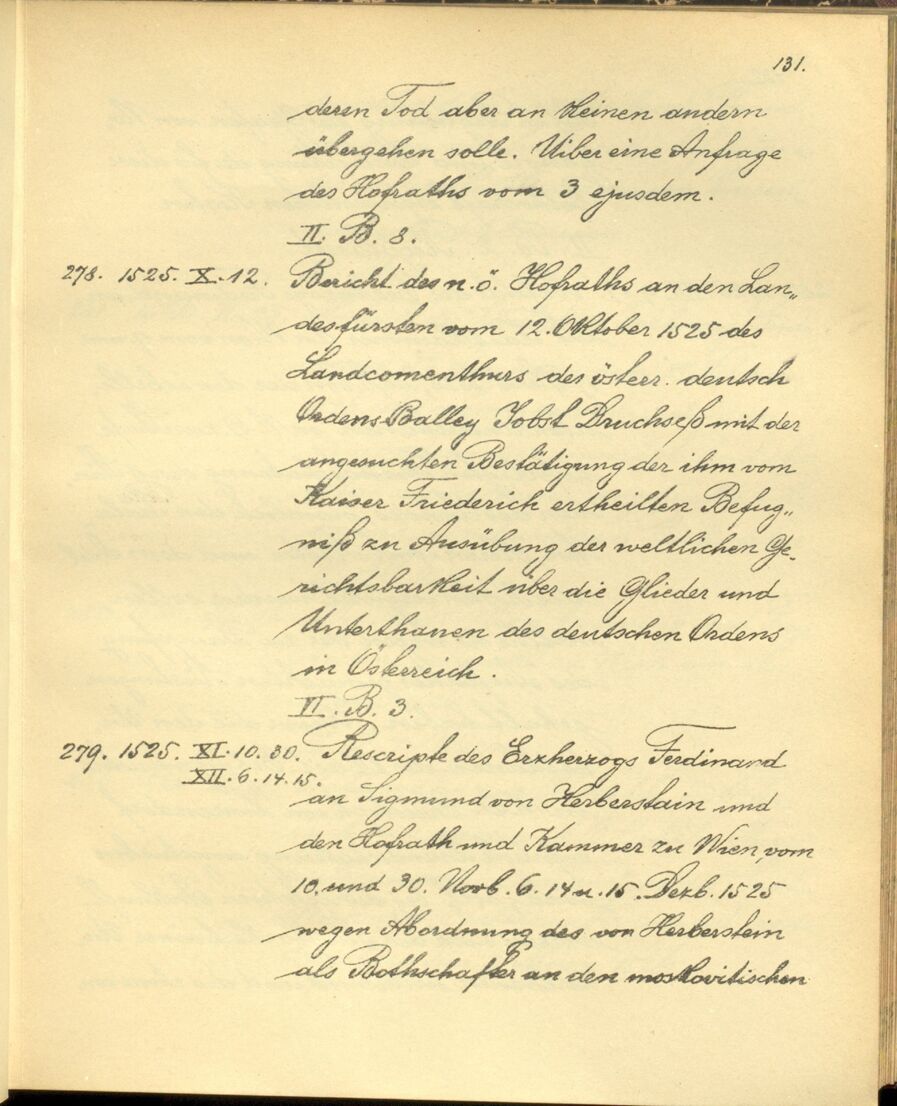 131.
deren Tod aber an keinen andern
übergehen solle. Uiber eine Anfrage
des Hofraths vom 3 ejusdem.
II. B. 8.
278. 1525. X. 12. Bericht des n. ö. Hofraths an den Lan„
desfürsten vom 12. Oktober 1525 des
Landcomenthurs des österr. deutsch
Ordens Balley Jobst Druchseß mit der
angesuchten Bestätigung der ihm vom
Kaiser Friederich ertheilten Befug„
niß zu Ausübung der weltlichen Ge„
richtsbarkeit über die Glieder und
Unterthanen des deutschen Ordens
in Österreich.
VI. B. 3.
279. 1525. XI. 10. 30. Rescripte des Erzherzogs Ferdinand
XII. 6. 14. 15.
an Sigmund von Herberstain und
den Hofrath und Kammer zu Wien, vom
10. und 30. Novb. 6. 14 u. 15. Dezb. 1525
wegen Abordnung des von Herberstein
als Bothschafter an den moskovitischen